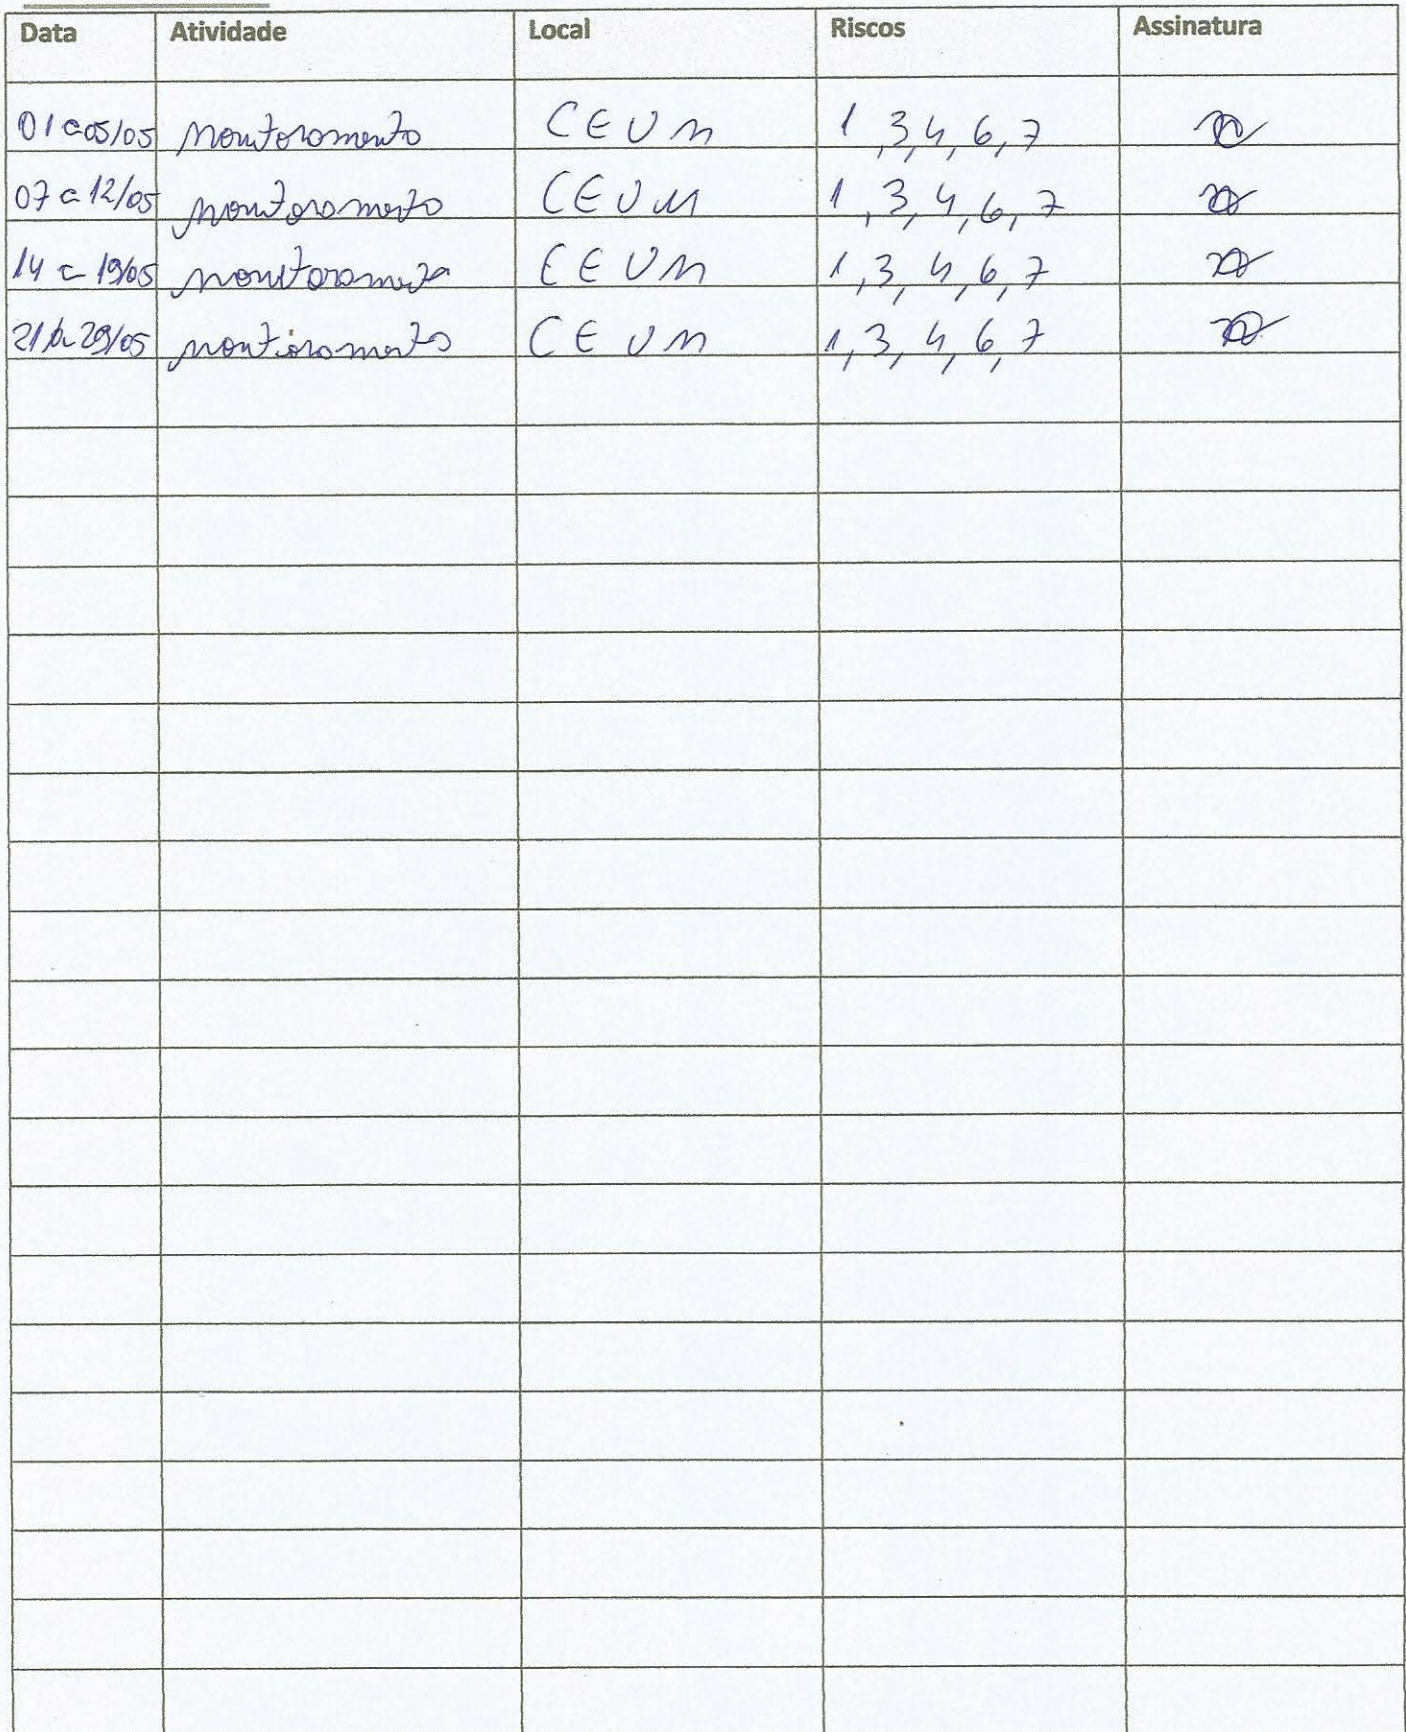 Data Atividade Local Riscos Assinatura
01 a 05/05 Monitoramento CEUM 1,3,4,6,7
07 a 12/05 monitoramento CEUM 1,3,4,6,7
14 a 19/05 monitoramento CEUM 1,3,4,6,7
21 a 29/05 monitoramento CEUM 1,3,4,6,7